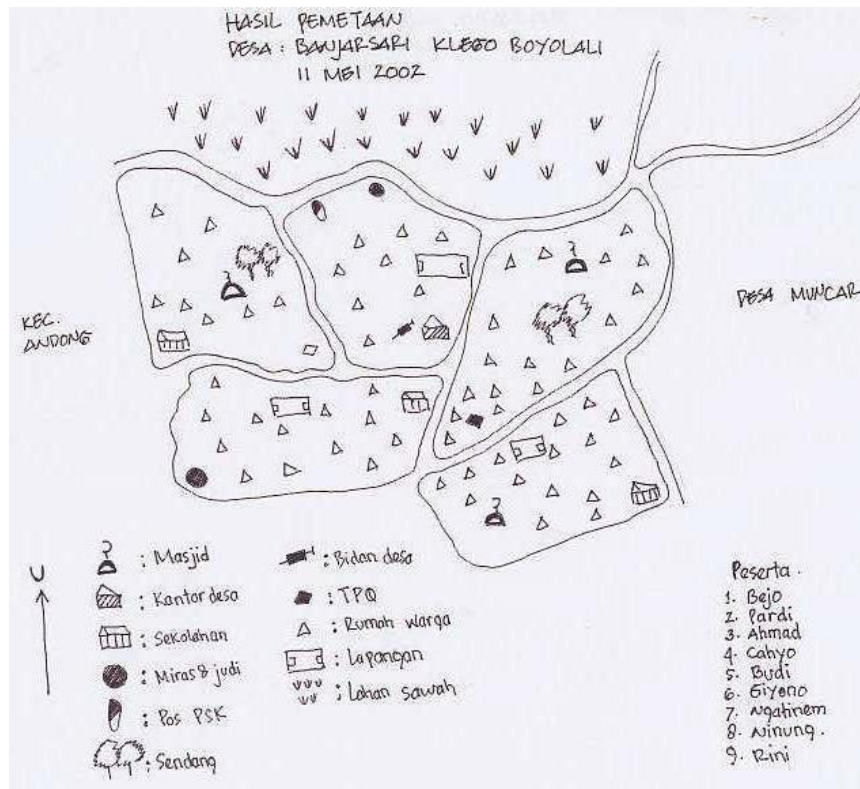 HASIL PEMETAAN
DESA : BANJARSARI KLEGO BOYOLALI
11 MEI 2002
KEC.
ANDONG
DESA MUNCAR
U
: Masjid
: Kantor desa
: Sekolahan
: Miras & judi
: Pos PSK
: Sendang
: Bidan desa
: TPQ
: Rumah warga
: Lapangan
: Lahan sawah
Peserta.
1. Bejo
2. Pardi
3. Ahmad
4. Cahyo
5. Budi
6. Giyono
7. Ngatinem
8. Ninung.
9. Rini